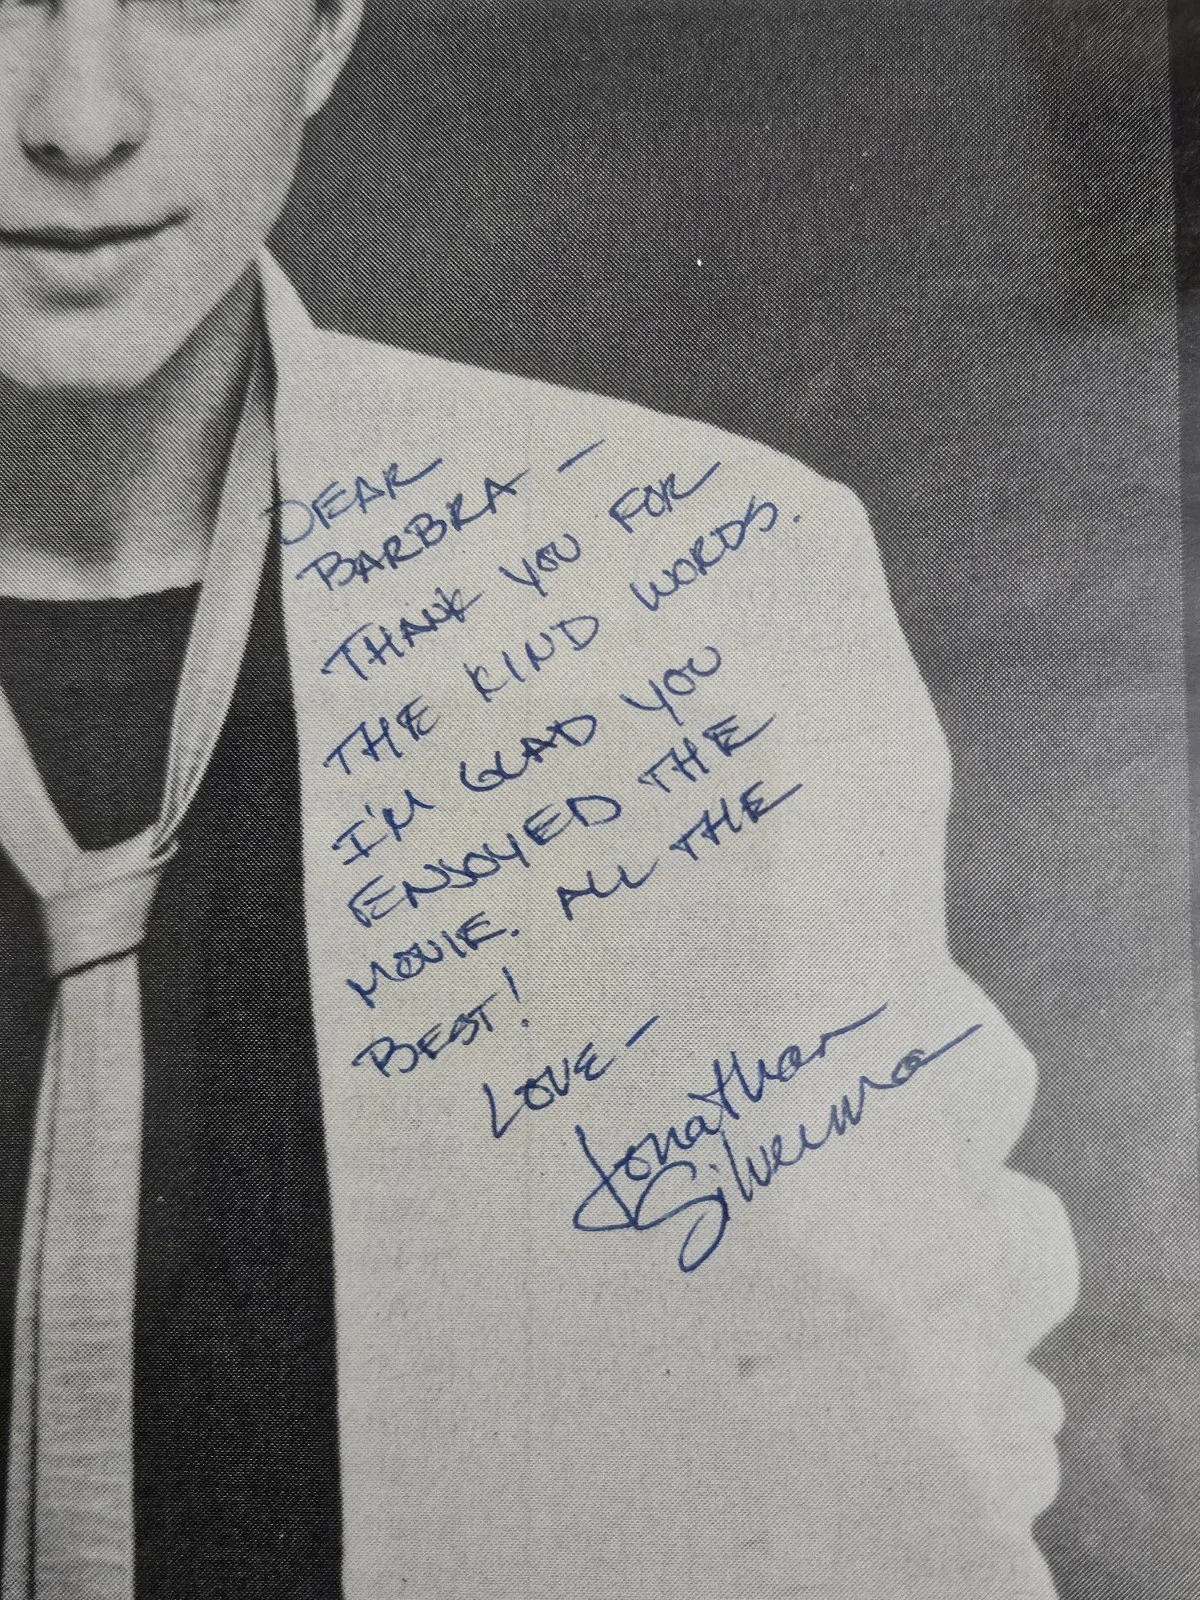 DEAR
BARBRA —
THANK YOU FOR
THE KIND WORDS.
I'M GLAD YOU
ENJOYED THE
MOVIE. ALL THE
BEST!
LOVE —
Jonathan
Silverman